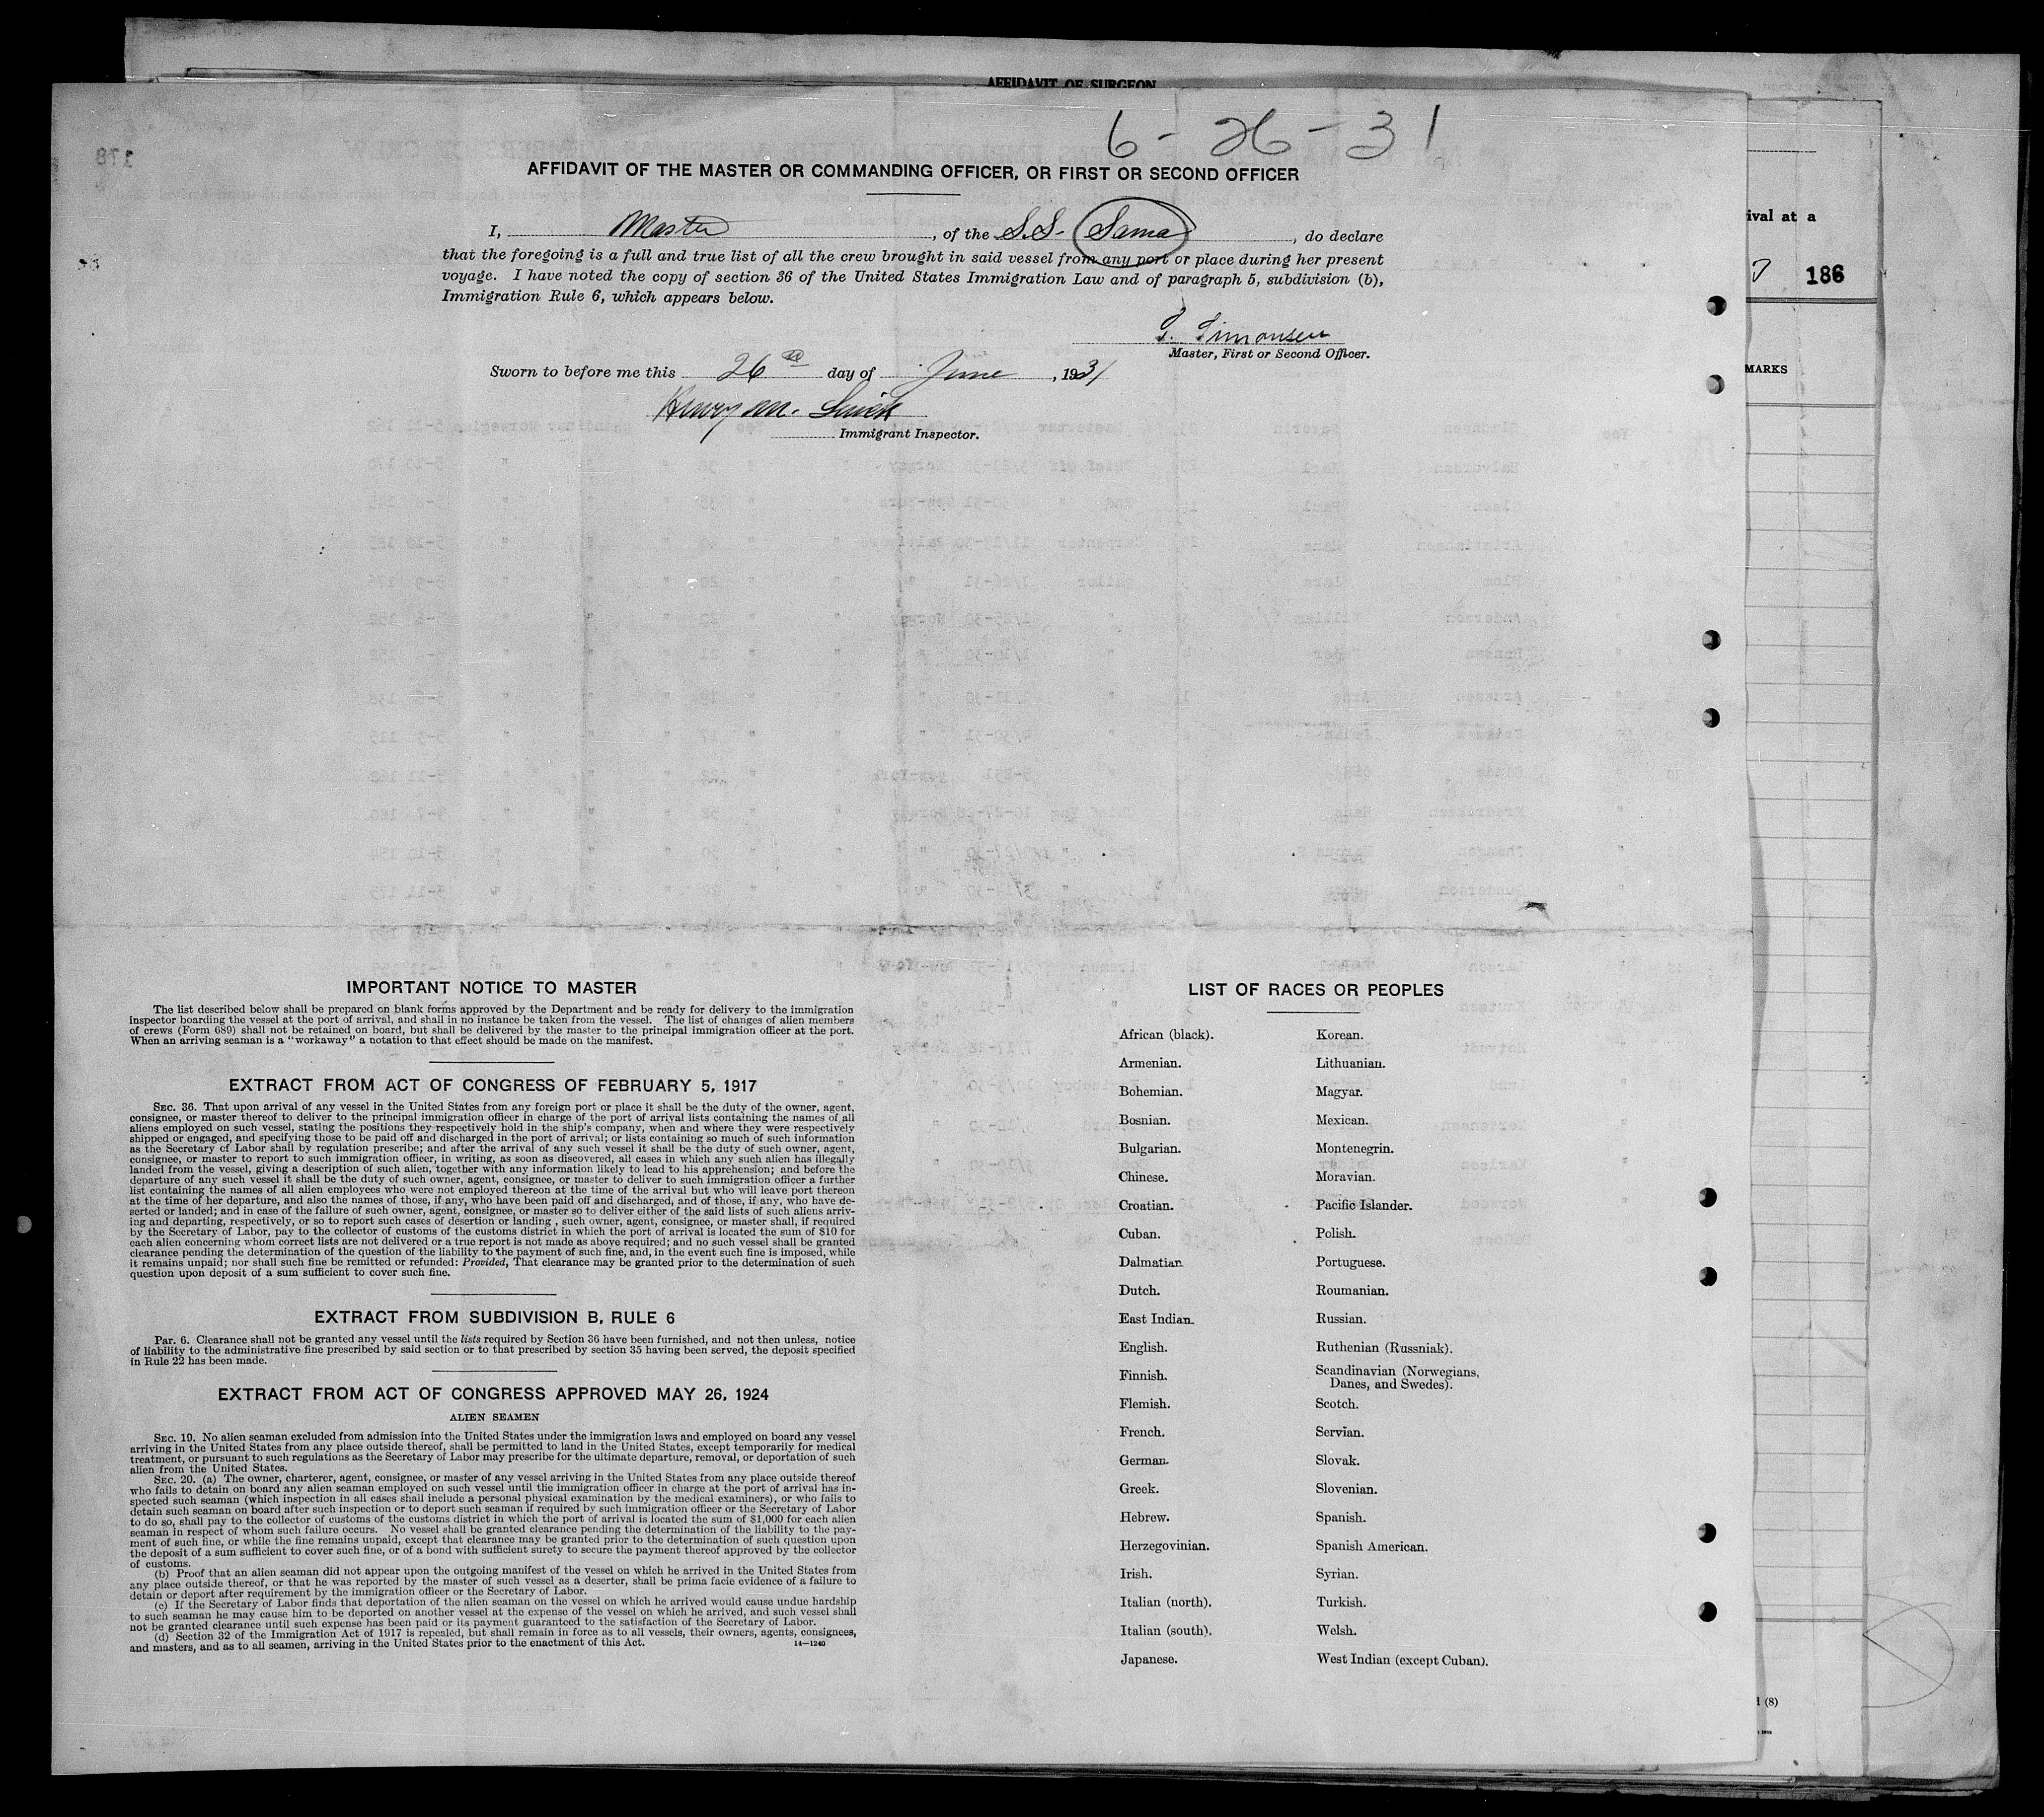 AFFIDAVIT OF SURGEON
6-26-31
AFFIDAVIT OF THE MASTER OR COMMANDING OFFICER, OR FIRST OR SECOND OFFICER
I, Master, of the S.S. Sama, do declare
that the foregoing is a full and true list of all the crew brought in said vessel from any port or place during her present
voyage. I have noted the copy of section 36 of the United States Immigration Law and of paragraph 5, subdivision (b),
Immigration Rule 6, which appears below.
Simonsen
Master, First or Second Officer.
Sworn to before me this 26th day of June, 1931
Henry M.
Immigrant Inspector.
ival at a
186
MARKS
IMPORTANT NOTICE TO MASTER
The list described below shall be prepared on blank forms approved by the Department and be ready for delivery to the immigration
inspector boarding the vessel at the port of arrival, and shall in no instance be taken from the vessel. The list of changes of alien members
of crews (Form 689) shall not be retained on board, but shall be delivered by the master to the principal immigration officer at the port.
When an arriving seaman is a "workaway" a notation to that effect should be made on the manifest.
EXTRACT FROM ACT OF CONGRESS OF FEBRUARY 5, 1917
SEC. 36. That upon arrival of any vessel in the United States from any foreign port or place it shall be the duty of the owner, agent,
consignee, or master thereof to deliver to the principal immigration officer in charge of the port of arrival lists containing the names of all
aliens employed on such vessel, stating the positions they respectively hold in the ship's company, when and where they were respectively
shipped or engaged, and specifying those to be paid off and discharged in the port of arrival; or lists containing so much of such information
as the Secretary of Labor shall by regulation prescribe; and after the arrival of any such vessel it shall be the duty of such owner, agent,
consignee, or master to report to such immigration officer, in writing, as soon as discovered, all cases in which any such alien has illegally
landed from the vessel, giving a description of such alien, together with any information likely to lead to his apprehension; and before the
departure of any such vessel it shall be the duty of such owner, agent, consignee, or master to deliver to such immigration officer a further
list containing the names of all alien employees who were not employed thereon at the time of the arrival but who will leave port thereon
at the time of her departure, and also the names of those, if any, who have been paid off and discharged, and of those, if any, who have de-
serted or landed; and in case of the failure of such owner, agent, consignee, or master so to deliver either of the said lists of such aliens arriv-
ing and departing, respectively, or so to report such cases of desertion or landing , such owner, agent, consignee, or master shall, if required
by the Secretary of Labor, pay to the collector of customs of the customs district in which the port of arrival is located the sum of $10 for
each alien concerning whom correct lists are not delivered or a true report is not made as above required; and no such vessel shall be granted
clearance pending the determination of the question of the liability to the payment of such fine, and, in the event such fine is imposed, while
it remains unpaid; nor shall such fine be remitted or refunded: Provided, That clearance may be granted prior to the determination of such
question upon deposit of a sum sufficient to cover such fine.
EXTRACT FROM SUBDIVISION B, RULE 6
Par. 6. Clearance shall not be granted any vessel until the lists required by Section 36 have been furnished, and not then unless, notice
of liability to the administrative fine prescribed by said section or to that prescribed by section 35 having been served, the deposit specified
in Rule 22 has been made.
EXTRACT FROM ACT OF CONGRESS APPROVED MAY 26, 1924
ALIEN SEAMEN
SEC. 19. No alien seaman excluded from admission into the United States under the immigration laws and employed on board any vessel
arriving in the United States from any place outside thereof, shall be permitted to land in the United States, except temporarily for medical
treatment, or pursuant to such regulations as the Secretary of Labor may prescribe for the ultimate departure, removal, or deportation of such
alien from the United States.
SEC. 20. (a) The owner, charterer, agent, consignee, or master of any vessel arriving in the United States from any place outside thereof
who fails to detain on board any alien seaman employed on such vessel until the immigration officer in charge at the port of arrival has in-
spected such seaman (which inspection in all cases shall include a personal physical examination by the medical examiners), or who fails to
detain such seaman on board after such inspection or to deport such seaman if required by such immigration officer or the Secretary of Labor
to do so, shall pay to the collector of customs of the customs district in which the port of arrival is located the sum of $1,000 for each alien
seaman in respect of whom such failure occurs. No vessel shall be granted clearance pending the determination of the liability to the pay-
ment of such fine, or while the fine remains unpaid, except that clearance may be granted prior to the determination of such question upon
the deposit of a sum sufficient to cover such fine, or of a bond with sufficient surety to secure the payment thereof approved by the collector
of customs.
(b) Proof that an alien seaman did not appear upon the outgoing manifest of the vessel on which he arrived in the United States from
any place outside thereof, or that he was reported by the master of such vessel as a deserter, shall be prima facie evidence of a failure to
detain or deport after requirement by the immigration officer or the Secretary of Labor.
(c) If the Secretary of Labor finds that deportation of the alien seaman on the vessel on which he arrived would cause undue hardship
to such seaman he may cause him to be deported on another vessel at the expense of the vessel on which he arrived, and such vessel shall
not be granted clearance until such expense has been paid or its payment guaranteed to the satisfaction of the Secretary of Labor.
(d) Section 32 of the Immigration Act of 1917 is repealed, but shall remain in force as to all vessels, their owners, agents, consignees,
and masters, and as to all seamen, arriving in the United States prior to the enactment of this Act.
14—1240
LIST OF RACES OR PEOPLES
African (black). Korean.
Armenian. Lithuanian.
Bohemian. Magyar.
Bosnian. Mexican.
Bulgarian. Montenegrin.
Chinese. Moravian.
Croatian. Pacific Islander.
Cuban. Polish.
Dalmatian. Portuguese.
Dutch. Roumanian.
East Indian. Russian.
English. Ruthenian (Russniak).
Finnish. Scandinavian (Norwegians,
Danes, and Swedes).
Flemish. Scotch.
French. Servian.
German. Slovak.
Greek. Slovenian.
Hebrew. Spanish.
Herzegovinian. Spanish American.
Irish. Syrian.
Italian (north). Turkish.
Italian (south). Welsh.
Japanese. West Indian (except Cuban).
(8)